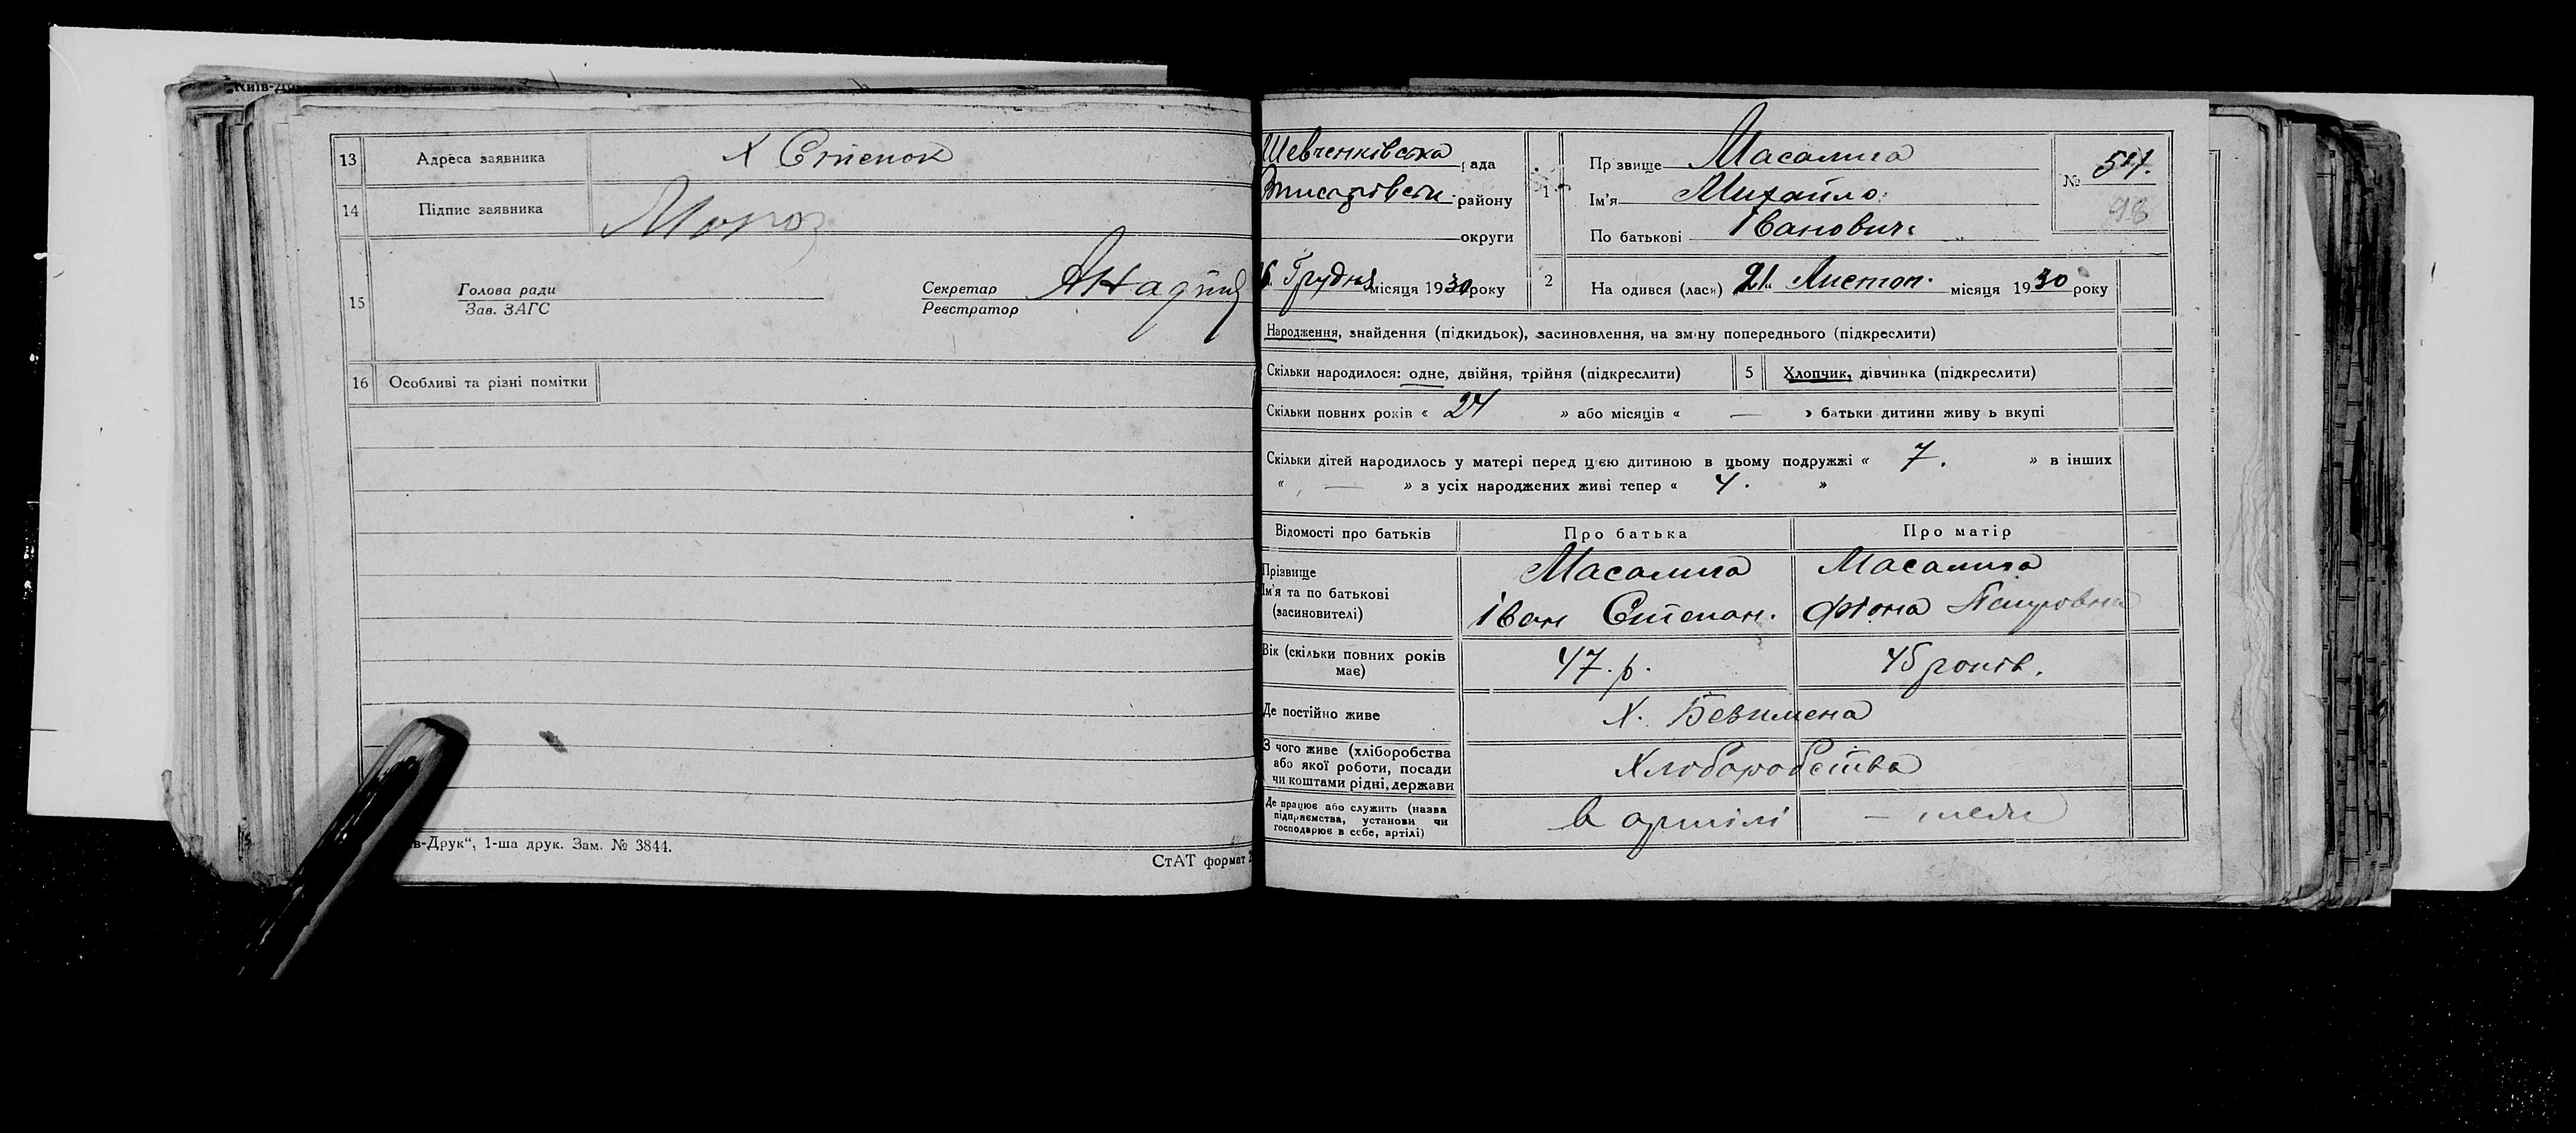 Київ-Др
13 Адреса заявника Х Степок
14 Підпис заявника Мороз
15 Голова ради Секретар
Зав. ЗАГС Реєстратор
16 Особливі та різні помітки
в-Друк“, 1-ша друк. Зам. № 3844.
СтАТ формат
Шевченківська рада
району
округи
6. Грудня місяця 1930 року
1 Прізвище Масалига
Ім'я Михайло
По батькові Іванович
№ 57.
98
2 Народився (лася) 21. Листоп. місяця 1930 року
Народження, знайдення (підкидьок), засиновлення, на зміну попереднього (підкреслити)
Скільки народилося: одне, двійня, трійня (підкреслити) 5 Хлопчик, дівчинка (підкреслити)
Скільки повних років « 24 » або місяців « — » батьки дитини живуть вкупі
Скільки дітей народилось у матері перед цією дитиною в цьому подружжі « 7. » в інших
« — » з усіх народжених живі тепер « 4. »
Відомості про батьків Про батька Про матір
Прізвище Масалига Масалига
Ім'я та по батькові
(засиновителі) Іван Степан.
Вік (скільки повних років
має) 47. р. 45 років.
Де постійно живе Х. Безимена
З чого живе (хліборобства
або якої роботи, посади
чи коштами рідні, держави Хліборобства
Де працює або служить (назва
підприємства, установи чи
господарює в себе, артілі) в артілі —